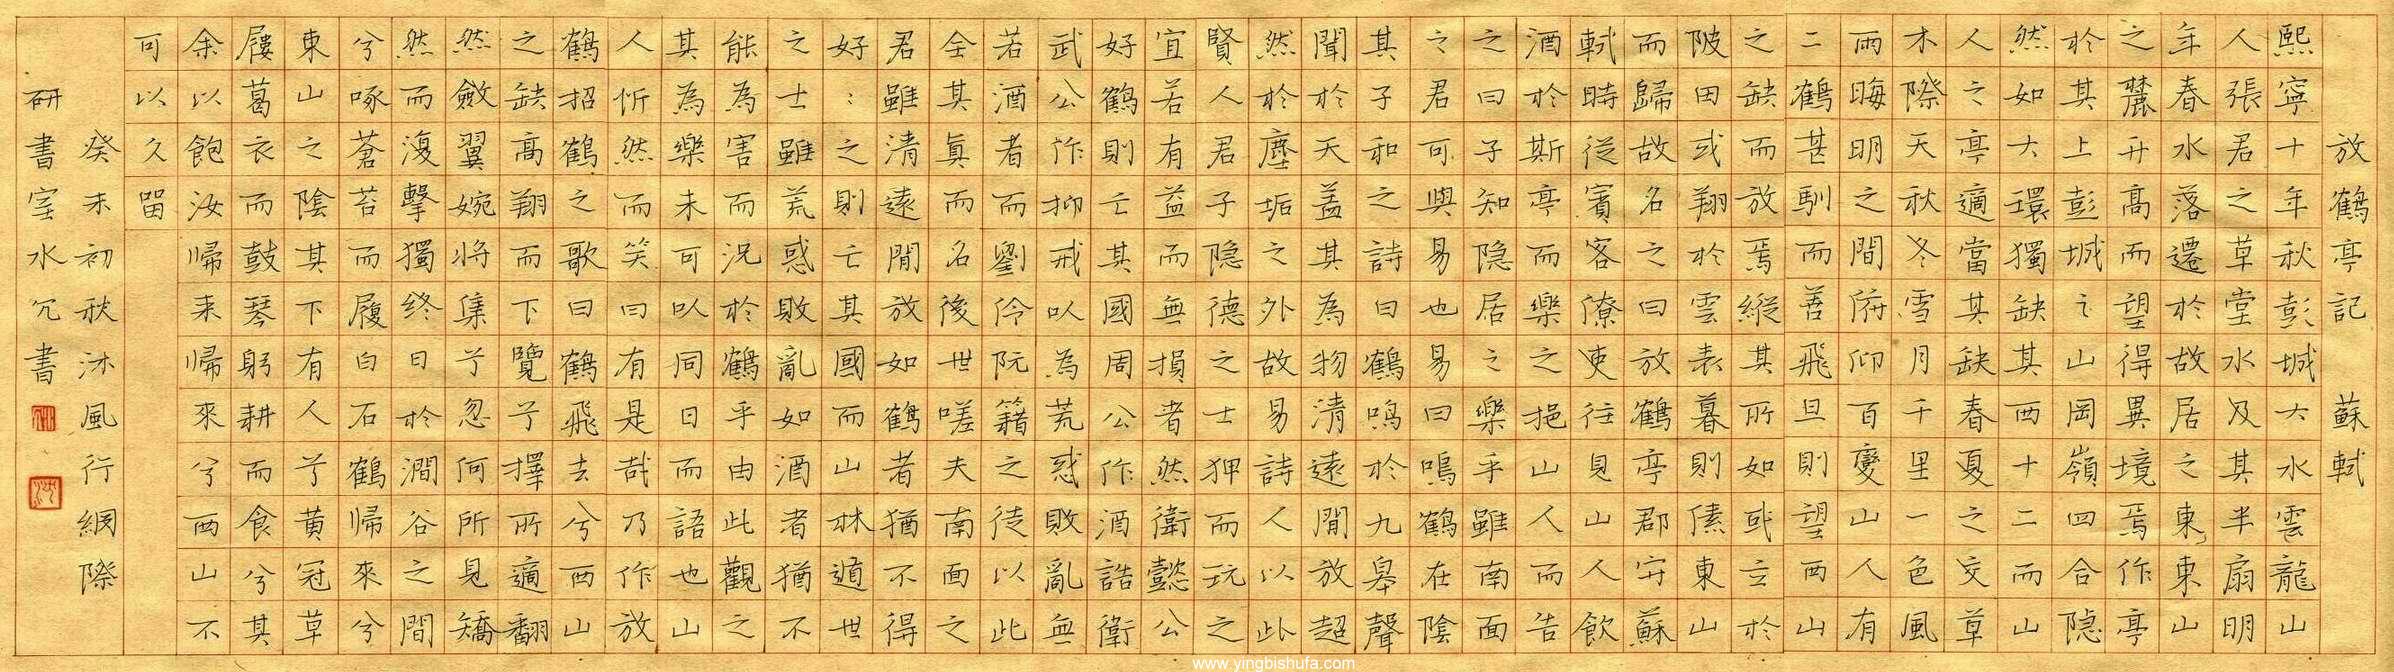 放鶴亭記 蘇軾
熙寧十年秋彭城大水雲龍山
人張君之草堂水及其半扇明
年春水落遷於故居之東東山
之麓升高而望得異境焉作亭
於其上彭城之山岡嶺四合隱
然如大環獨缺其西十二而山
人之亭適當其缺春夏之交草
木際天秋冬雪月千里一色風
雨晦明之間俯仰百變山人有
二鶴甚馴而善飛旦則望西山
之缺而放焉縱其所如或立於
陂田或翔於雲表暮則傃東山
而歸故名之曰放鶴亭郡守蘇
軾時從賓客僚吏往見山人飲
酒於斯亭而樂之挹山人而告
之曰子知隱居之樂乎雖南面
之君可與易也易曰鳴鶴在陰
其子和之詩曰鶴鳴於九皋聲
聞於天蓋其為物清遠閒放超
然於塵垢之外故易詩人以此
賢人君子隱德之士狎而玩之
宜若有益而無損者然衛懿公
好鶴則亡其國周公作酒誥衛
武公作抑戒以為荒惑敗亂無
若酒者而劉伶阮籍之徒以此
全其真而名後世嗟夫南面之
君雖清遠閒放如鶴者猶不得
好:之則亡其國而山林遁世
之士雖荒惑敗亂如酒者猶不
能為害而況於鶴乎由此觀之
其為樂未可以同日而語也山
人忻然而笑曰有是哉乃作放
鶴招鶴之歌曰鶴飛去兮西山
之缺高翔而下覽兮擇所適翻
然斂翼婉將集兮忽何所見矯
然而復擊獨終日於澗谷之間
兮啄蒼苔而履白石鶴歸來兮
東山之陰其下有人兮黃冠草
屨葛衣而鼓琴躬耕而食兮其
余以飽汝歸来歸來兮西山不
可以久留
癸未初秋沐風行網際
研書室水冗書
www.yingbishufa.com